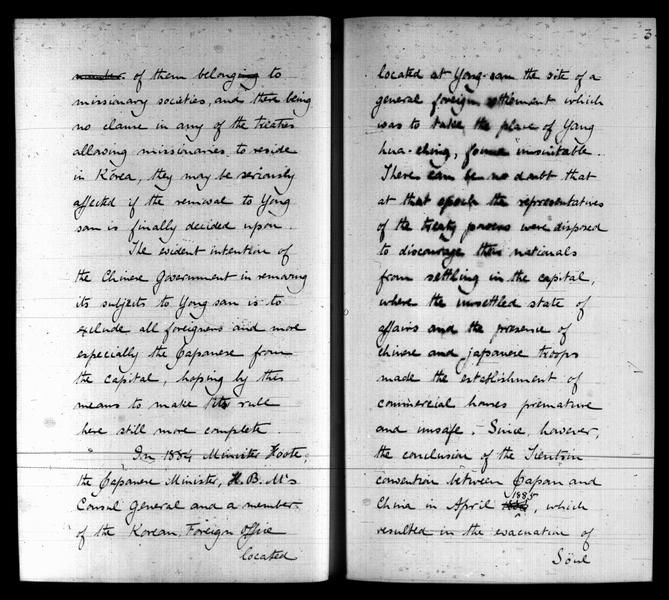 number of them belonging to
missionary societies, and there being
no clause in any of the treaties
allowing missionaries to reside
in Korea, they may be seriously
affected if the removal to Yong
san is finally decided upon.
The evident intention of
the Chinese Government in removing
its subjects to Yong san is to
exclude all foreigners and more
especially the Japanese from
the capital, hoping by this
means to make its rule
here still more complete
In 1884 Minister Foote,
the Japanese Minister, H.B.M's
Consul General and a member
of the Korean Foreign Office
located
3
located at Yong-san the site of a
general foreign settlement which
was to take the place of Yang
hua-ching, found unsuitable.
There can be no doubt that
at that epoch the representatives
of the treaty powers were disposed
to discourage their nationals
from settling in the capital,
where the unsettled state of
affairs and the presence of
chinese and japanese troops
made the establishment of
commercial houses premature
and unsafe. Since, however,
the conclusion of the Tientsin
convention between Japan and
1885
China in April, which
resulted in the evacuation of
Söul